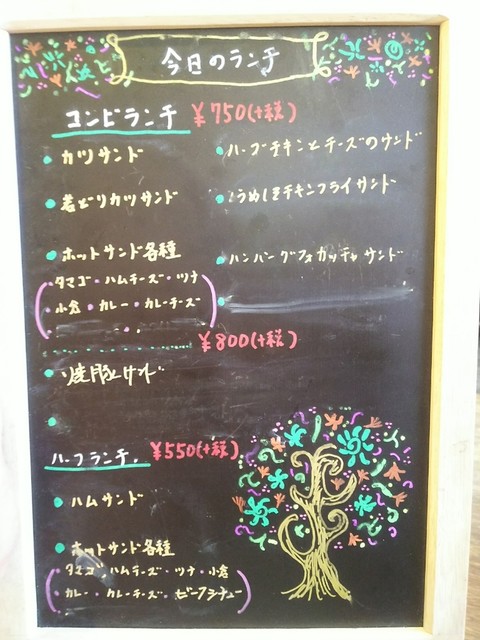 今日のランチ
コンビランチ ¥750(+税)
・カツサンド
・ハーブチキンとチーズのサンド
・若どりカツサンド
チキンフライサンド
・ホットサンド各種
・ハンバーグフォカッチャサンド
(タマゴ・ハムチーズ・ツナ
・小倉・カレー・カレーチーズ)
¥800(+税)
ハーフランチ ¥550(+税)
・ハムサンド
・ホットサンド各種
(タマゴ・ハムチーズ・ツナ・小倉
カレー・カレーチーズ・ビーフシチュー)